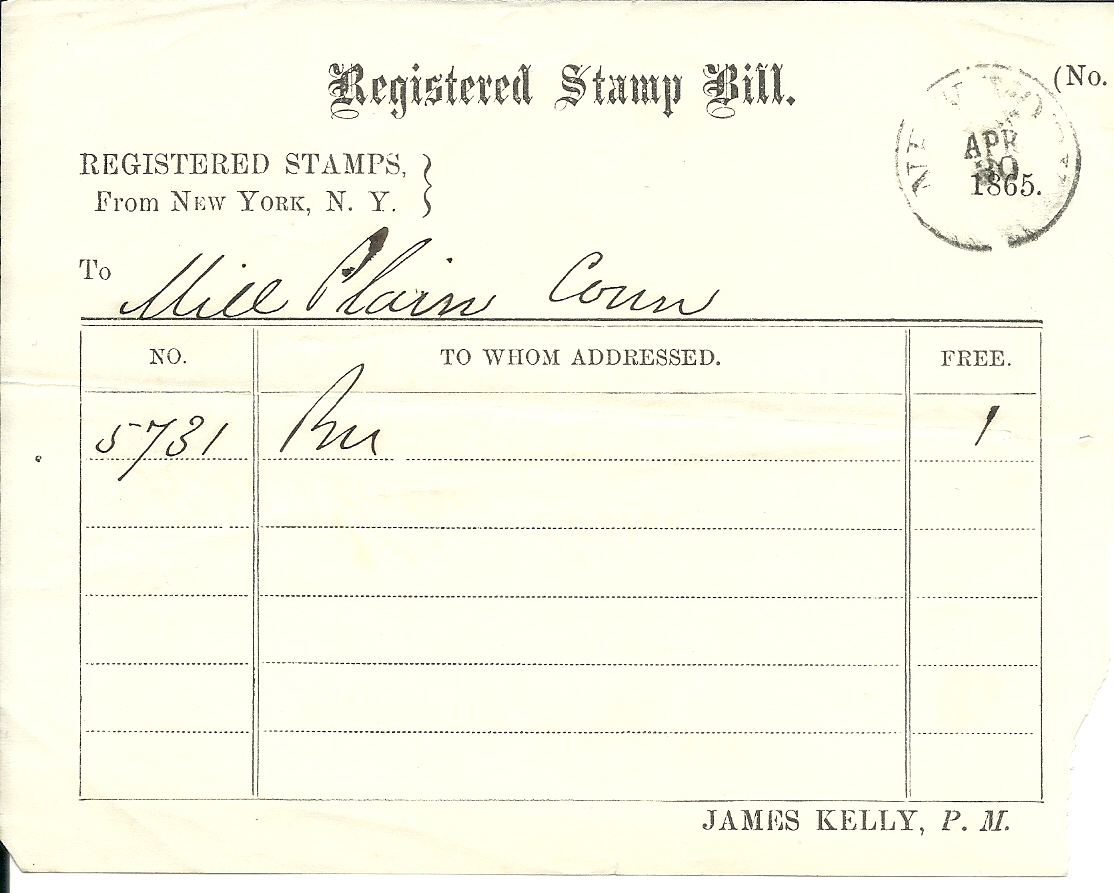 Registered Stamp Bill.
(No.
NEW YORK
APR
20
1865.
REGISTERED STAMPS,
From NEW YORK, N. Y.
To Mill Plain Conn
NO. TO WHOM ADDRESSED. FREE.
5731 1
JAMES KELLY, P. M.